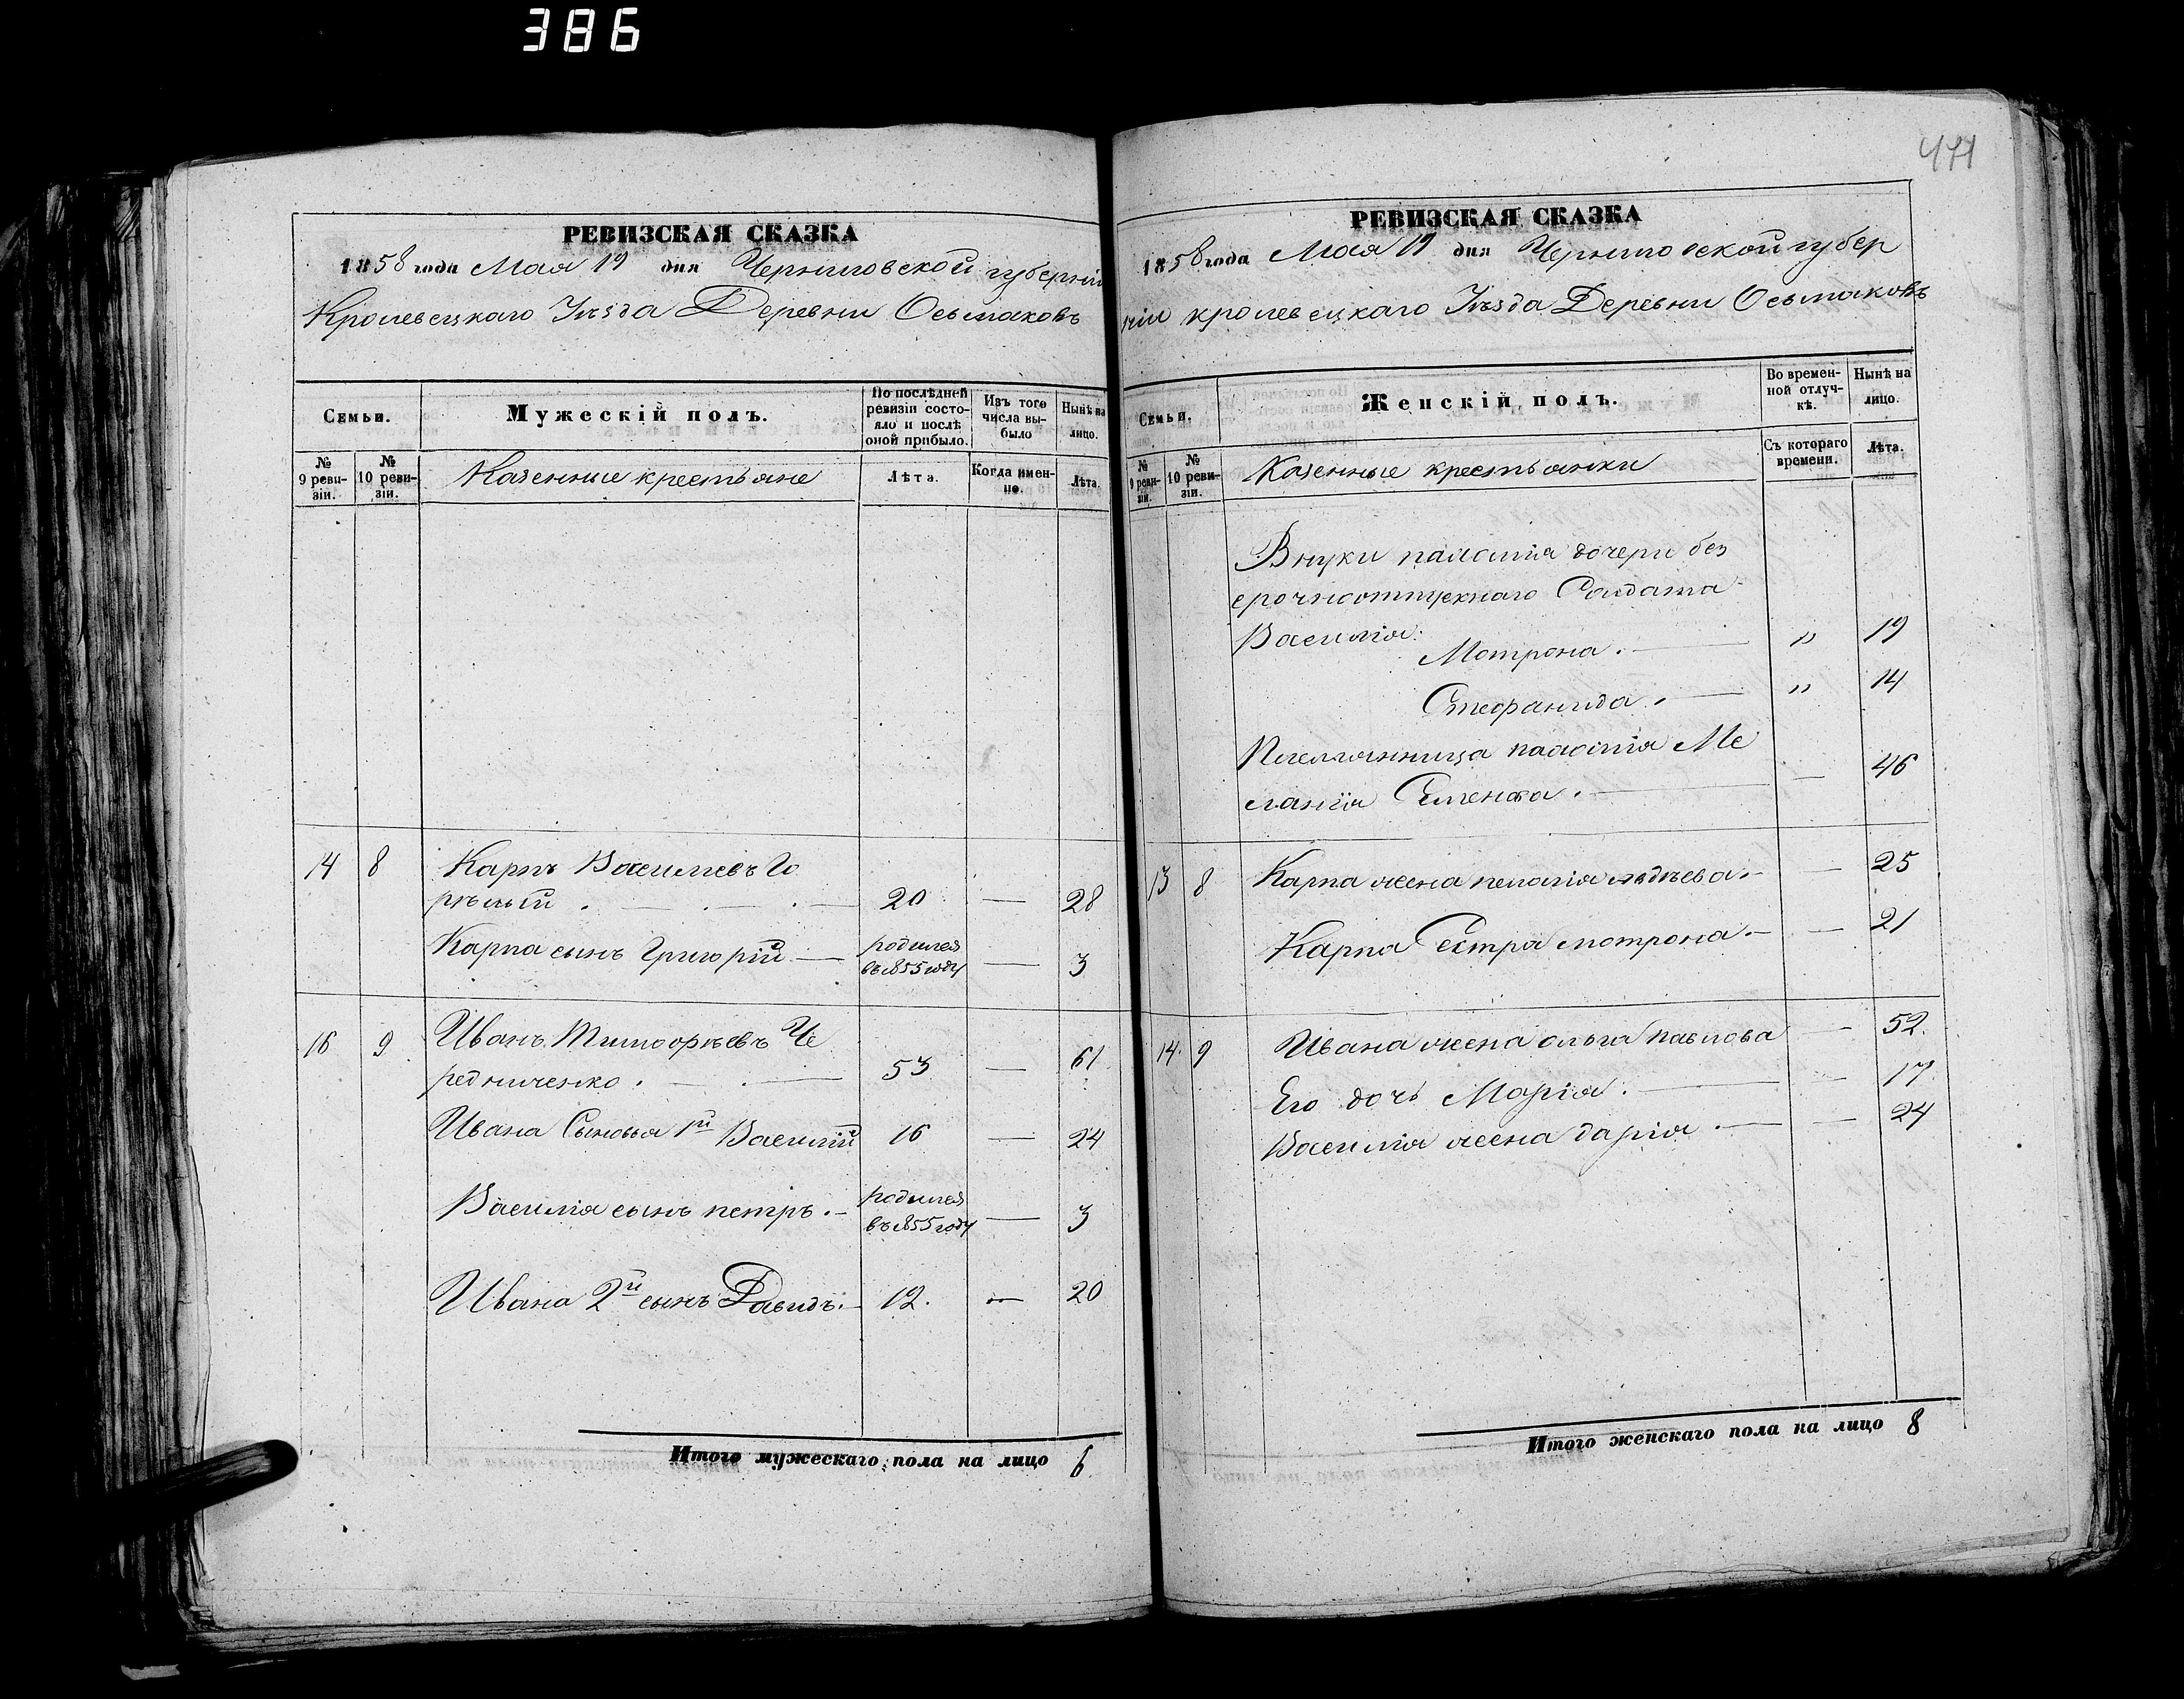 386
471
РЕВИЗСКАЯ СКАЗКА
1858 года Мая 19 дня Черниговской губерніи
Кролевецкаго Уѣзда Деревни Осьмаковъ
Семьи.
Мужескій полъ.
По послѣдней ревизіи состояло и послѣ оной прибыло.
Изъ того числа выбыло
Нынѣ на лицо.
№ 9 ревизіи.
№ 10 ревизіи.
Казенные крестьяне
Лѣта.
Когда именно.
Лѣта.
14 8 Карпъ Васильевъ Го
рѣлый . — . — . — 20 — 28
Карпа сынъ Григорій — родился въ 1855 году — 3
16 9 Иванъ Тимофѣевъ Че
редниченко . — . — 53 — 61
Ивана Сыновья 1й Василій 16 — 24
Василія сынъ петръ . — родился въ 1855 году — 3
Ивана 2й сынъ Давидъ. — 12. — 20
Итого мужескаго пола на лицо 6
РЕВИЗСКАЯ СКАЗКА
1858 года Мая 19 дня Черниговской губер
ніи кролевецкаго Уѣзда Деревни Осьмаковъ
Семьи.
Женскій полъ.
Во временной отлучкѣ.
Нынѣ на лицо.
№ 9 ревизіи.
№ 10 ревизіи.
Казенные крестьянки
Съ котораго времени.
Лѣта.
Внуки дочери без
срочноотпускнаго Солдата
Василія:
Мотрона . — " 19
Стефанида . — " 14
Племянница Ме
ланія Семенова . — — 46
13 8 Карпа жена пелагія . — — 25
Карпа Сестра мотрона . — — 21
14. 9 Ивана жена ольга павлова — 52.
Его дочь Марія . — — 17
Василія жена дарія . — — 24
Итого женскаго пола на лицо 8